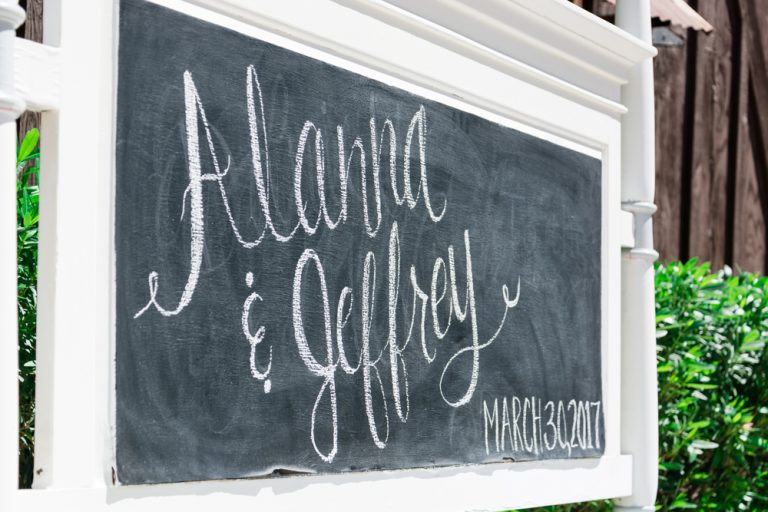 Alanna
& Jeffrey
MARCH 30, 2017